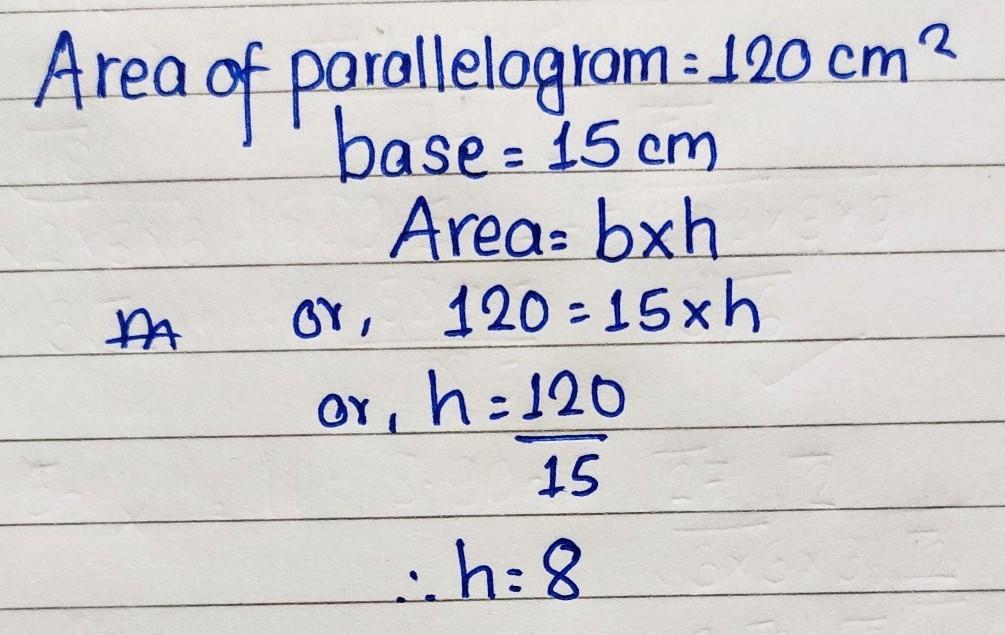 Area of parallelogram = 120 cm²
base = 15 cm
Area = b×h
or, 120 = 15×h
or, h = 120
15
∴ h = 8